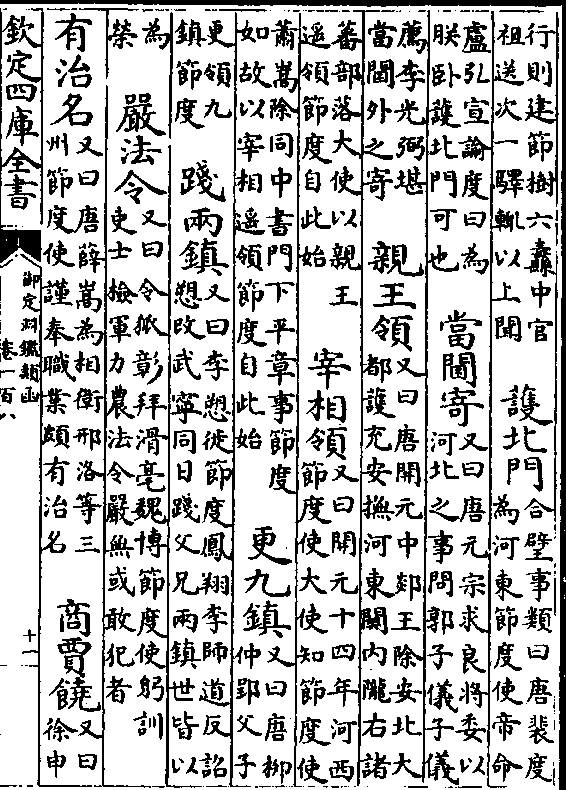 行則建節樹六纛中官
祖送次一驛輒以上聞
護北門
合璧事類曰唐裴度
為河東節度使帝命
盧弘宣諭度曰為
朕卧護北門可也
當閫寄
又曰唐元宗求良將委以
河北之事問郭子儀子儀
薦李光弼堪
當閫外之寄
親王領
又曰唐開元中郯王除安北大
都護充安撫河東關內隴右諸
蕃部落大使以親王
遥領節度自此始
宰相領
又曰開元十四年河西
節度使大使知節度使
蕭嵩除同中書門下平章事節度
如故以宰相遥領節度自此始
更九鎮
又曰唐柳
仲郢父子
更領九
鎮節度
踐兩鎮
又曰李愬徙節度鳳翔李師道反詔
愬改武寧同日踐父兄兩鎮世皆以
為
榮
嚴法令
又曰令狐彰拜滑亳魏博節度使躬訓
吏士檢軍力農法令嚴無或敢犯者
有治名
又曰唐薛嵩為相衛邢洛等三
州節度使謹奉職業頗有治名
商賈饒
又曰
徐申
欽定四庫全書
御定淵鑑類函
卷一百八
十一